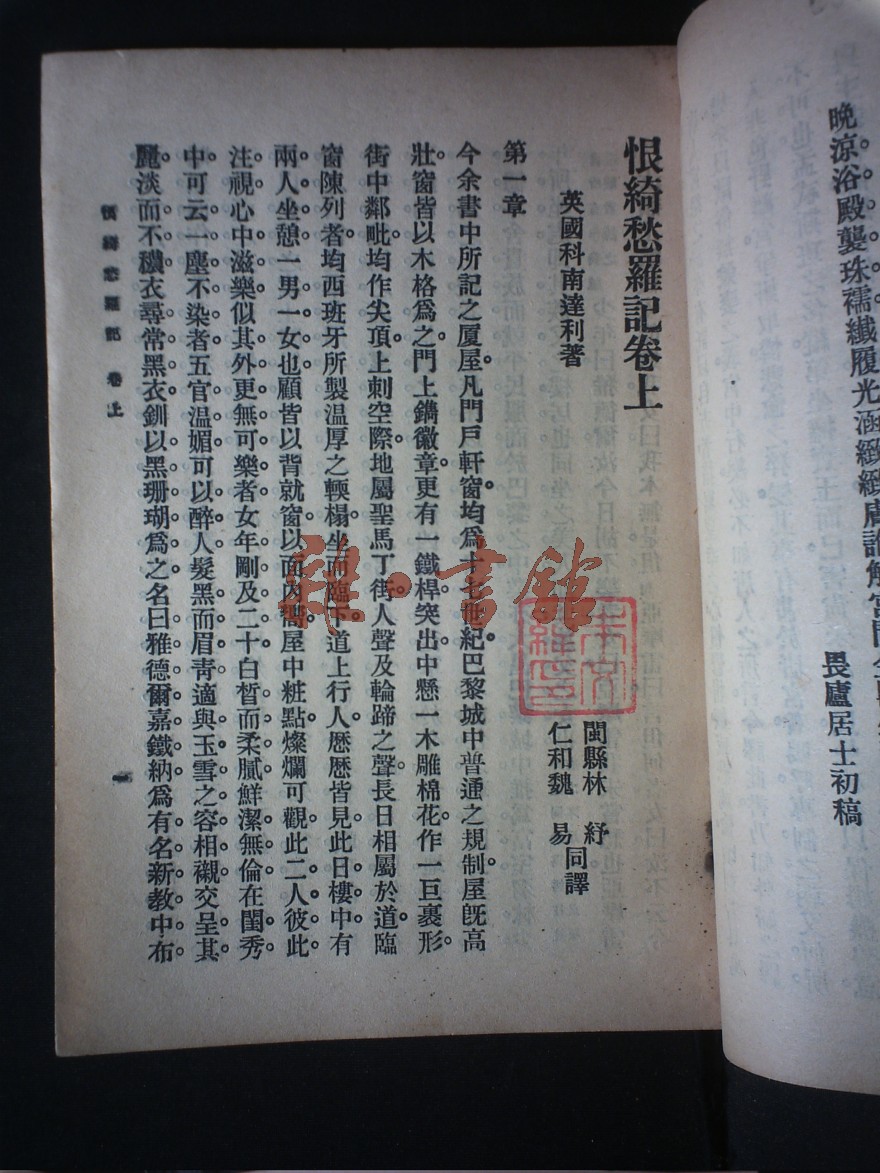 晚涼浴殿襲珠襦纖履光涵緻緻膚誰解宮
畏廬居士初稿
恨綺愁羅記卷上
英國科南達利著
閩縣林 紓
仁和魏 易
同譯
第一章
今余書中所記之厦屋。凡門戶軒窗。均為十七世紀巴黎城中普通之規制。屋旣高
壯。窗皆以木格為之。門上鐫徽章。更有一鐵桿突出。中懸一木雕棉花。作一巨裹形。
街中鄰毗。均作尖頂。上刺空際。地屬聖馬丁街。人聲及輪蹄之聲。長日相屬於道。臨
窗陳列者。均西班牙所製溫厚之輭榻。坐而臨下。道上行人。歷歷皆見。此日樓中有
兩人坐憩。一男一女也。顧皆以背就窗。以面內嚮。屋中粧點。燦爛可觀。此二人彼此
注視。心中滋樂。似其外更無可樂者。女年剛及二十。白皙而柔膩。鮮潔無倫。在閨秀
中。可云一塵不染者。五官溫媚。可以醉人。髮黑而眉靑。適與玉雪之容相襯。交呈其
麗。淡而不穠。衣尋常黑衣。釧以黑珊瑚為之。名曰雅德爾嘉鐵納。為有名新教中布
恨綺愁羅記 卷上
一
雜·書館